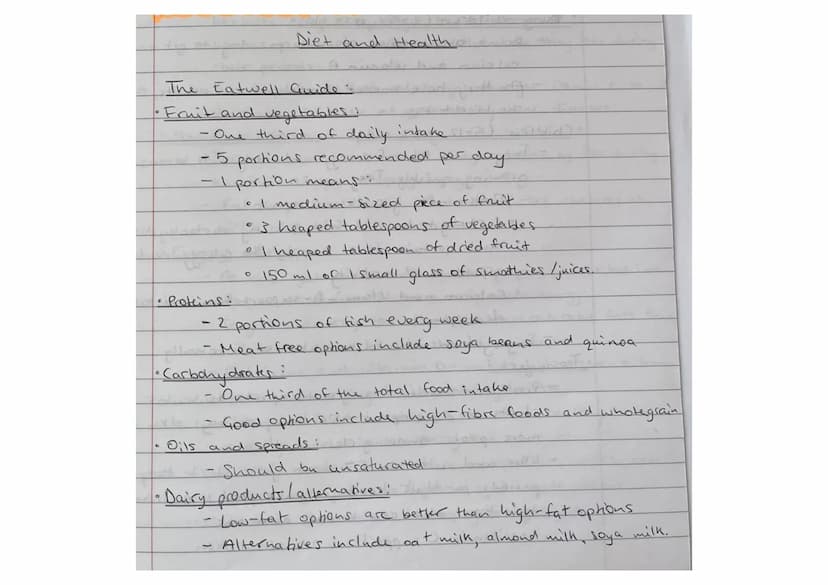 Diet and Health
The Eatwell Guide:
• Fruit and vegetables:
- One third of daily intake
- 5 portions recommended per day
- 1 portion means:
◦ 1 medium-sized piece of fruit
◦ 3 heaped tablespoons of vegetables
◦ 1 heaped tablespoon of dried fruit
◦ 150 ml of 1 small glass of smothies/juices.
• Proteins:
- 2 portions of fish every week
- Meat free options include soya beans and quinoa
• Carbohydrates:
- One third of the total food intake
- Good options include high-fibre foods and wholegrain
• Oils and spreads:
- Should be unsaturated
• Dairy products/alternatives:
- Low-fat options are better than high-fat options
- Alternatives include oat milk, almond milk, soya milk.